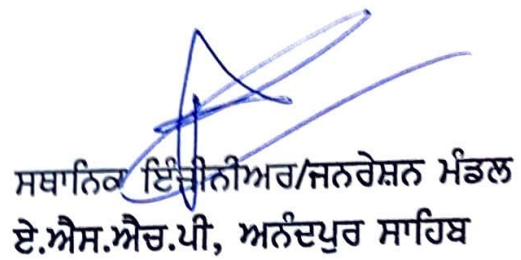 ਸਥਾਨਿਕ ਇੰਜੀਨੀਅਰ/ਜਨਰੇਸ਼ਨ ਮੰਡਲ
ਏ.ਐਸ.ਐਚ.ਪੀ, ਅਨੰਦਪੁਰ ਸਾਹਿਬ